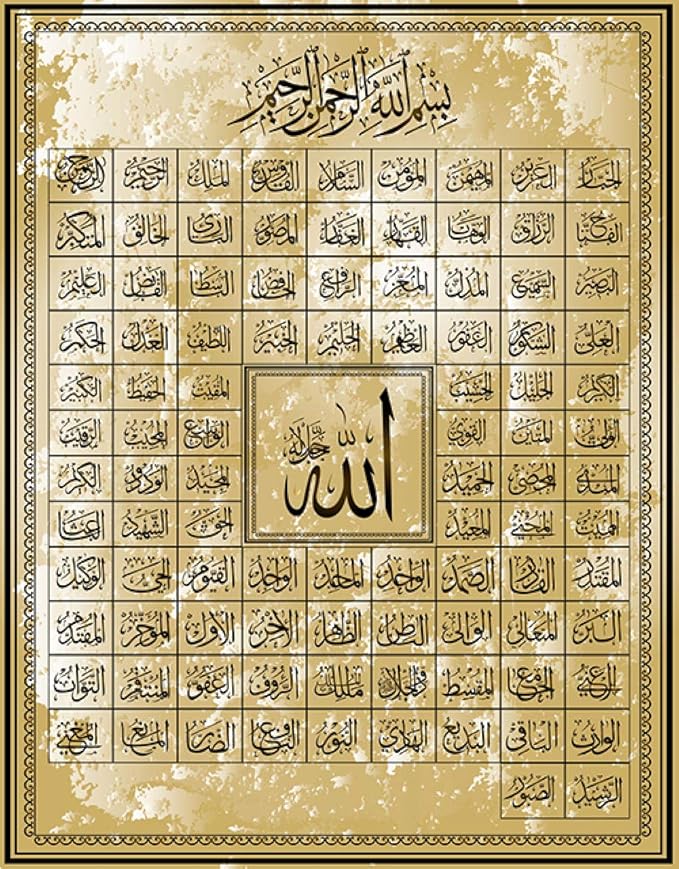 بِسْمِ اللَّهِ الرَّحْمَنِ الرَّحِيمِ
الجبار العزيز المهيمن المؤمن السلام القدوس الملك الرحيم الرحمن
الفتاح الرزاق الوهاب القهار الغفار المصور البارئ الخالق المتكبر
البصير السميع المذل المعز الرافع الخافض الباسط القابض العليم
العلي الشكور الغفور العظيم الحليم الخبير اللطيف العدل الحكم
الكريم الجليل الحسيب المقيت الحفيظ الكبير
الولي المتين القوي الواسع المجيب الرقيب
الله جل جلاله
المحصي الحميد المجيد الودود
المميت المحيي المعيد الحق الشهيد الباعث
المقتدر القادر الصمد الواحد الماجد الواجد القيوم الحي الوكيل
البر المتعالي الوالي الباطن الظاهر الآخر الأول المؤخر المقدم
الغني الجامع المقسط مالك الرؤوف العفو المنتقم التواب
الوارث الباقي البديع الهادي النور النافع الضار المانع المغني
الرشيد الصبور